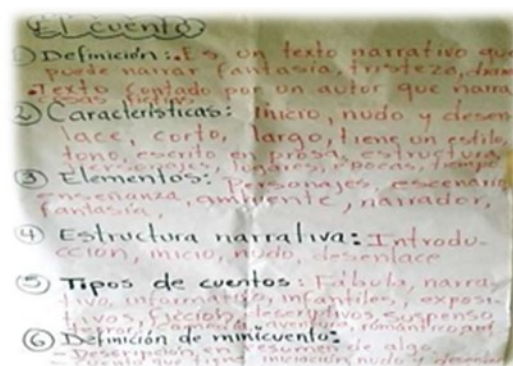 El cuento
① Definición: • Es un texto narrativo que
puede narrar fantasía, tristeza, drama
• Texto contado por un autor que narra
cosas
② Características: Inicio, nudo y desen
lace, corto, largo, tiene un estilo,
tono, escrito en prosa, estructura
personajes, lugares, épocas, tiempo
③ Elementos: Personajes, escenario
enseñanza, ambiente, narrador,
fantasía,
④ Estructura narrativa: Introdu-
cción, inicio, nudo, desenlace
⑤ Tipos de cuentos: Fábula, narra-
tivo, informativo, infantiles, exposi-
tivos, ficción, descriptivos, suspenso
terror, comedia, aventura, romántico,
⑥ Definición de minicuento:
- Descripción, en resumen de algo.
- Cuento que tiene iniciación, nudo y desenlac